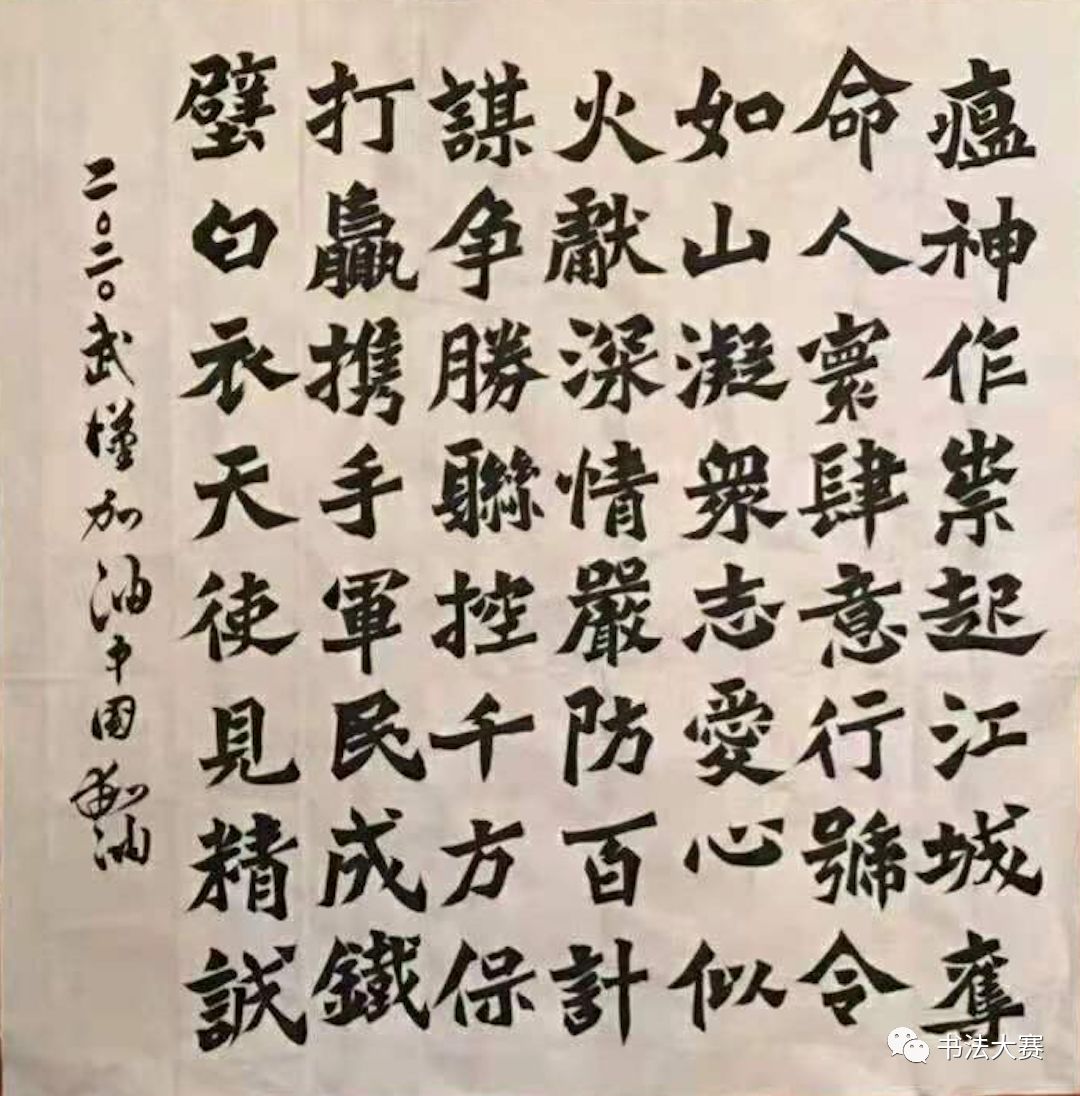 瘟神作祟起江城奪
命人寰肆意行號令
如山凝眾志愛心似
火獻深情嚴防百計
謀争勝聯控千方保
打贏携手軍民成鐵
壁白衣天使見精誠
二〇二〇武漢加油中國加油
书法大赛